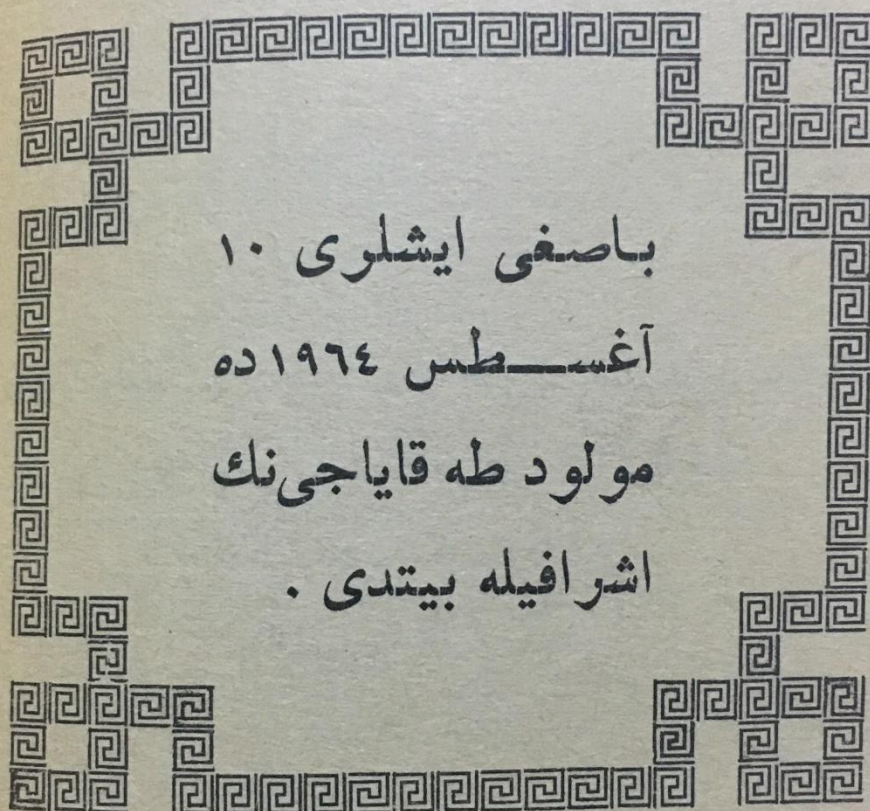 باصغی ایشلری ١٠
آغســـطس ١٩٦٤ده
مولود طه قایاجی‌نك
اشرافیله بیتدی .